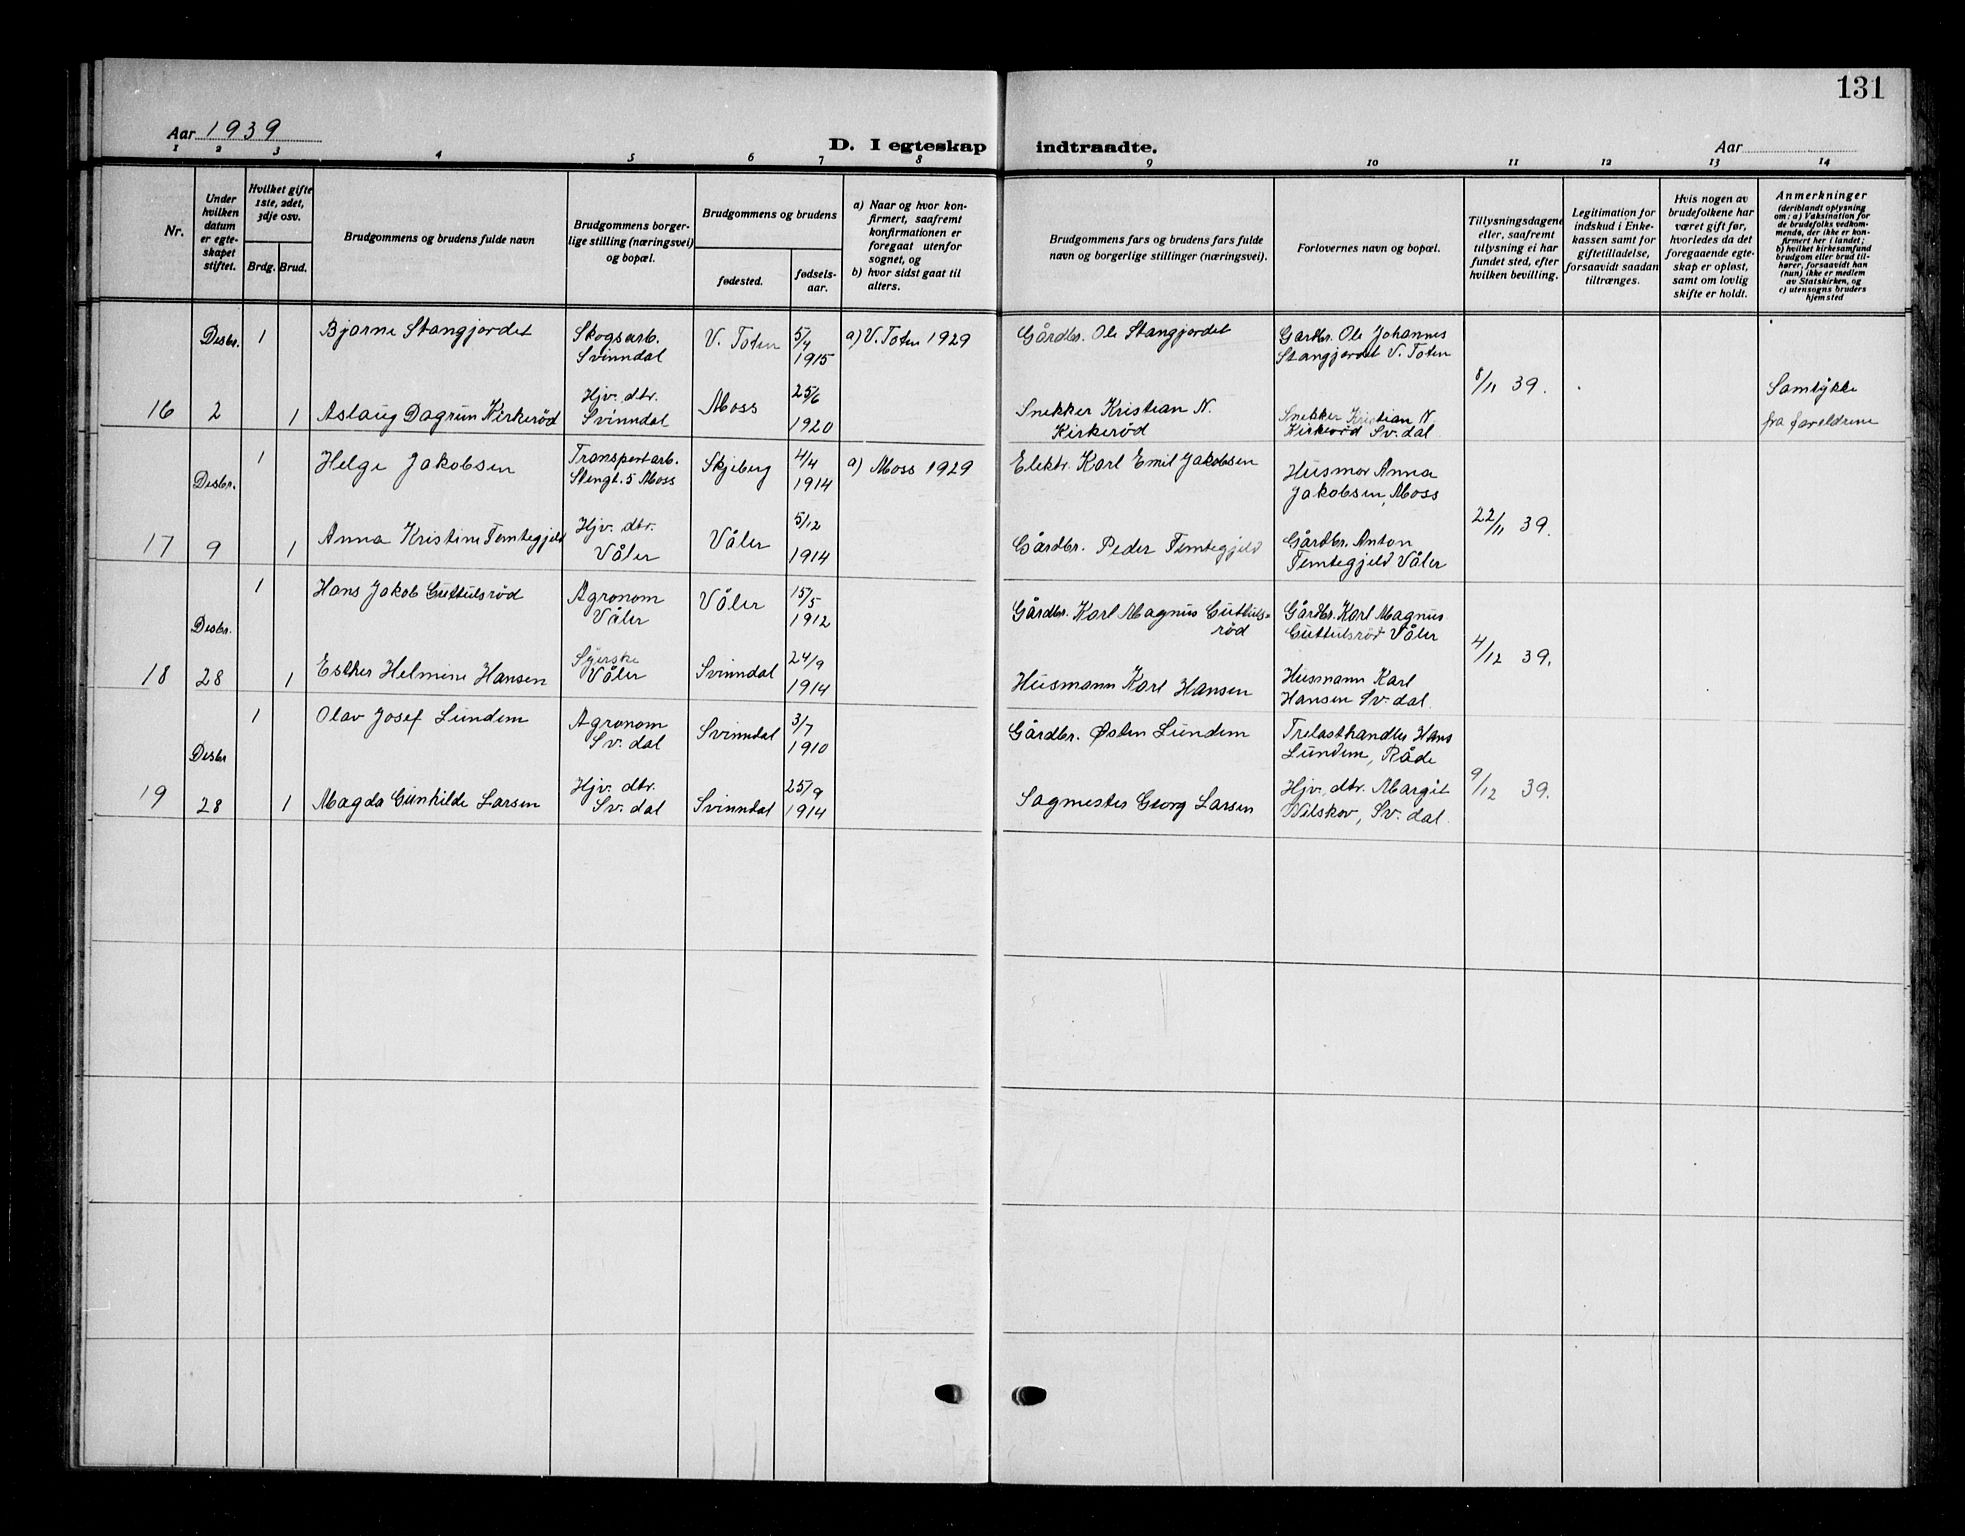 131
Aar 1939
D. I egteskap indtraadte.
Aar
1 2 3 4 5 6 7 8 9 10 11 12 13 14
Nr.
Under
hvilken
datum
er egte-
skapet
stiftet.
Hvilket gifte
1ste, 2det,
3dje osv.
Brdg. Brud.
Brudgommens og brudens fulde navn
Brudgommens borger-
lige stilling (næringsvei)
og bopæl.
Brudgommens og brudens
fødested.
fødsels-
aar.
a) Naar og hvor kon-
firmert, saafremt
konfirmationen er
foregaat utenfor
sognet, og
b) hvor sidst gaat til
alters.
Brudgommens fars og brudens fars fulde
navn og borgerlige stillinger (næringsvei).
Forlovernes navn og bopæl.
Tillysningsdagene
eller, saafremt
tillysning ei har
fundet sted, efter
hvilken bevilling.
Legitimation for
indskud i Enke-
kassen samt for
giftetilladelse,
forsaavidt saadan
tiltrænges.
Hvis nogen av
brudefolkene har
været gift før,
hvorledes da det
foregaaende egte-
skap er opløst,
samt om lovlig
skifte er holdt.
Anmerkninger
(deriblandt oplysning
om: a) Vaksination for
de brudefolks vedkom-
mende, der ikke er kon-
firmert her i landet;
b) hvilket kirkesamfund
brudgom eller brud til-
hører, forsaavidt han
(hun) ikke er medlem
av Statskirken, og
c) utensogns bruders
hjemsted
Desbr. 1 Bjarne Stangjordet
Skogsarb.
Svinndal
V. Toten
5/4
1915
a) V. Toten 1929
Gårdbr. Ole Stangjordet
Gardbr. Ole Johannes
Stangjordet V. Toten
8/11 39.
16 2 1 Aslaug Dagrun Kirkerød
Hjv. dtr.
Svinndal
Moss
25/6
1920
Snekker Kristian N.
Kirkerød
Snekker Kristian N
Kirkerød Sv. dal
Samtykke
fra foreldrene
Desbr. 1 Helge Jakobsen
Transportarb.
Stengt. 5 Moss
Skjeberg
4/4
1914
a) Moss 1929
Elektr. Karl Emil Jakobsen
Husmor Anna
Jakobsen, Moss
22/11 39.
17 9 1 Anna Kristine Temtegjeld
Hjv. dtr.
Våler
Våler
5/12
1914
Gårdbr. Peder Temtegjeld
Gårdbr. Anton
Temtegjeld Våler
Desbr. 1 Hans Jakob Guttulsrød
Agronom
Våler
Våler
15/5
1912
Gårdbr. Karl Magnus Guttuls-
rød
Gårdbr. Karl Magnus
Guttulsrød Våler
4/12 39.
18 28 1 Esther Helmine Hansen
Syerske
Våler
Svinndal
24/9
1914
Husmann Karl Hansen
Husmann Karl
Hansen Sv. dal.
Desbr 1 Olav Josef Lundem
Agronom
Sv. dal
Svinndal
3/7
1910
Gårdbr. Østen Lundem
Trelasthandler Hans
Lundem, Råde
9/12 39.
19 28 1 Magda Gunhilde Larsen
Hjv. dtr.
Sv. dal
Svinndal
25/9
1914
Sagmester Georg Larsen
Hjv. dtr. Margit
Delskov, Sv. dal.